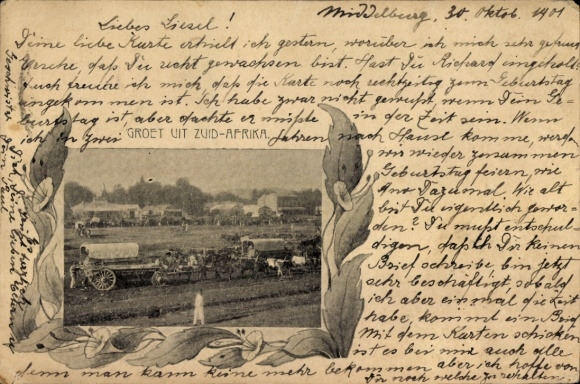 Middelburg, 30. Oktob. 1901
Liebes Liesel!
Deine liebe Karte erhielt ich gestern, worüber ich mich sehr gefreut
daß Du recht gewachsen bist. Hast Du Richard eingeholt?
Auch freute ich mich, daß die Karte noch rechtzeitig zum Geburtstag
ingekommen ist. Ich habe zwar nicht gewußt, wenn Dein Ge-
burtstag ist, aber dachte er müßte in der Zeit sein. Wenn
ich in zwei Jahren nach Hause komme, werden
GROET UIT ZUID-AFRIKA.
wir wieder zusammen
Geburtstag feiern, wie
Ano Dazumal. Wie alt
bist Du eigentlich gewor-
den? Du mußt entschul-
digen, daß ich Dir keinen
Brief schreibe, bin jetzt
sehr beschäftigt, sobald
ich aber einmal die Zeit
habe, kommt ein Brief
Mit dem Karten schicken
ist es bei mir auch alle
denn man kann keine mehr bekommen aber ich hoffe von
Dir noch welche zu erhalten.